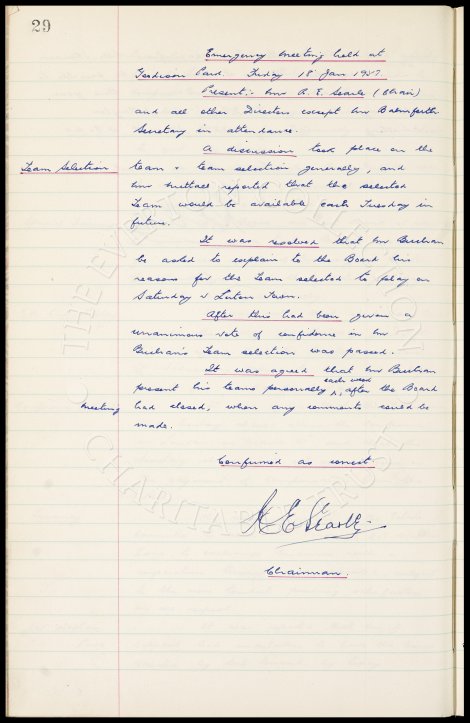 29
Emergency meeting held at
Goodison Park. Friday 18 Jan 1957
Present:- Mr A. E. Searle (Chair)
and all other Directors except Mr Balmforth
Secretary in attendance.
A discussion took place on the
Team Selection team & team selection generally, and
Mr Nuttall reported that the selected
Team would be available each Tuesday in
future.
It was resolved that Mr Buchan
be asked to explain to the Board his
reasons for the Team selected to play on
Saturday v Luton Town.
After this had been given a
unanimous vote of confidence in Mr
Buchan's Team selection was passed.
It was agreed that Mr Buchan
each week
present his teams personally, after the Board
meeting had closed, when any comments could be
made.
Confirmed as correct.
A E Searle
Chairman.
THE EVERTON COLLECTION
CHARITABLE TRUST